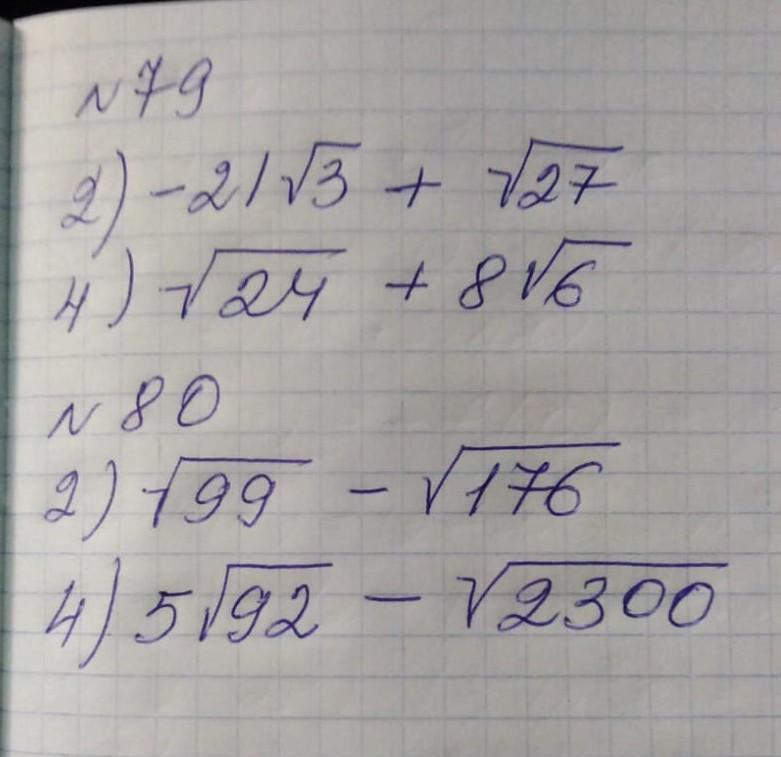 N79
2) -21√3 + √27
4) √24 + 8√6
N80
2) √99 - √176
4) 5√92 - √2300